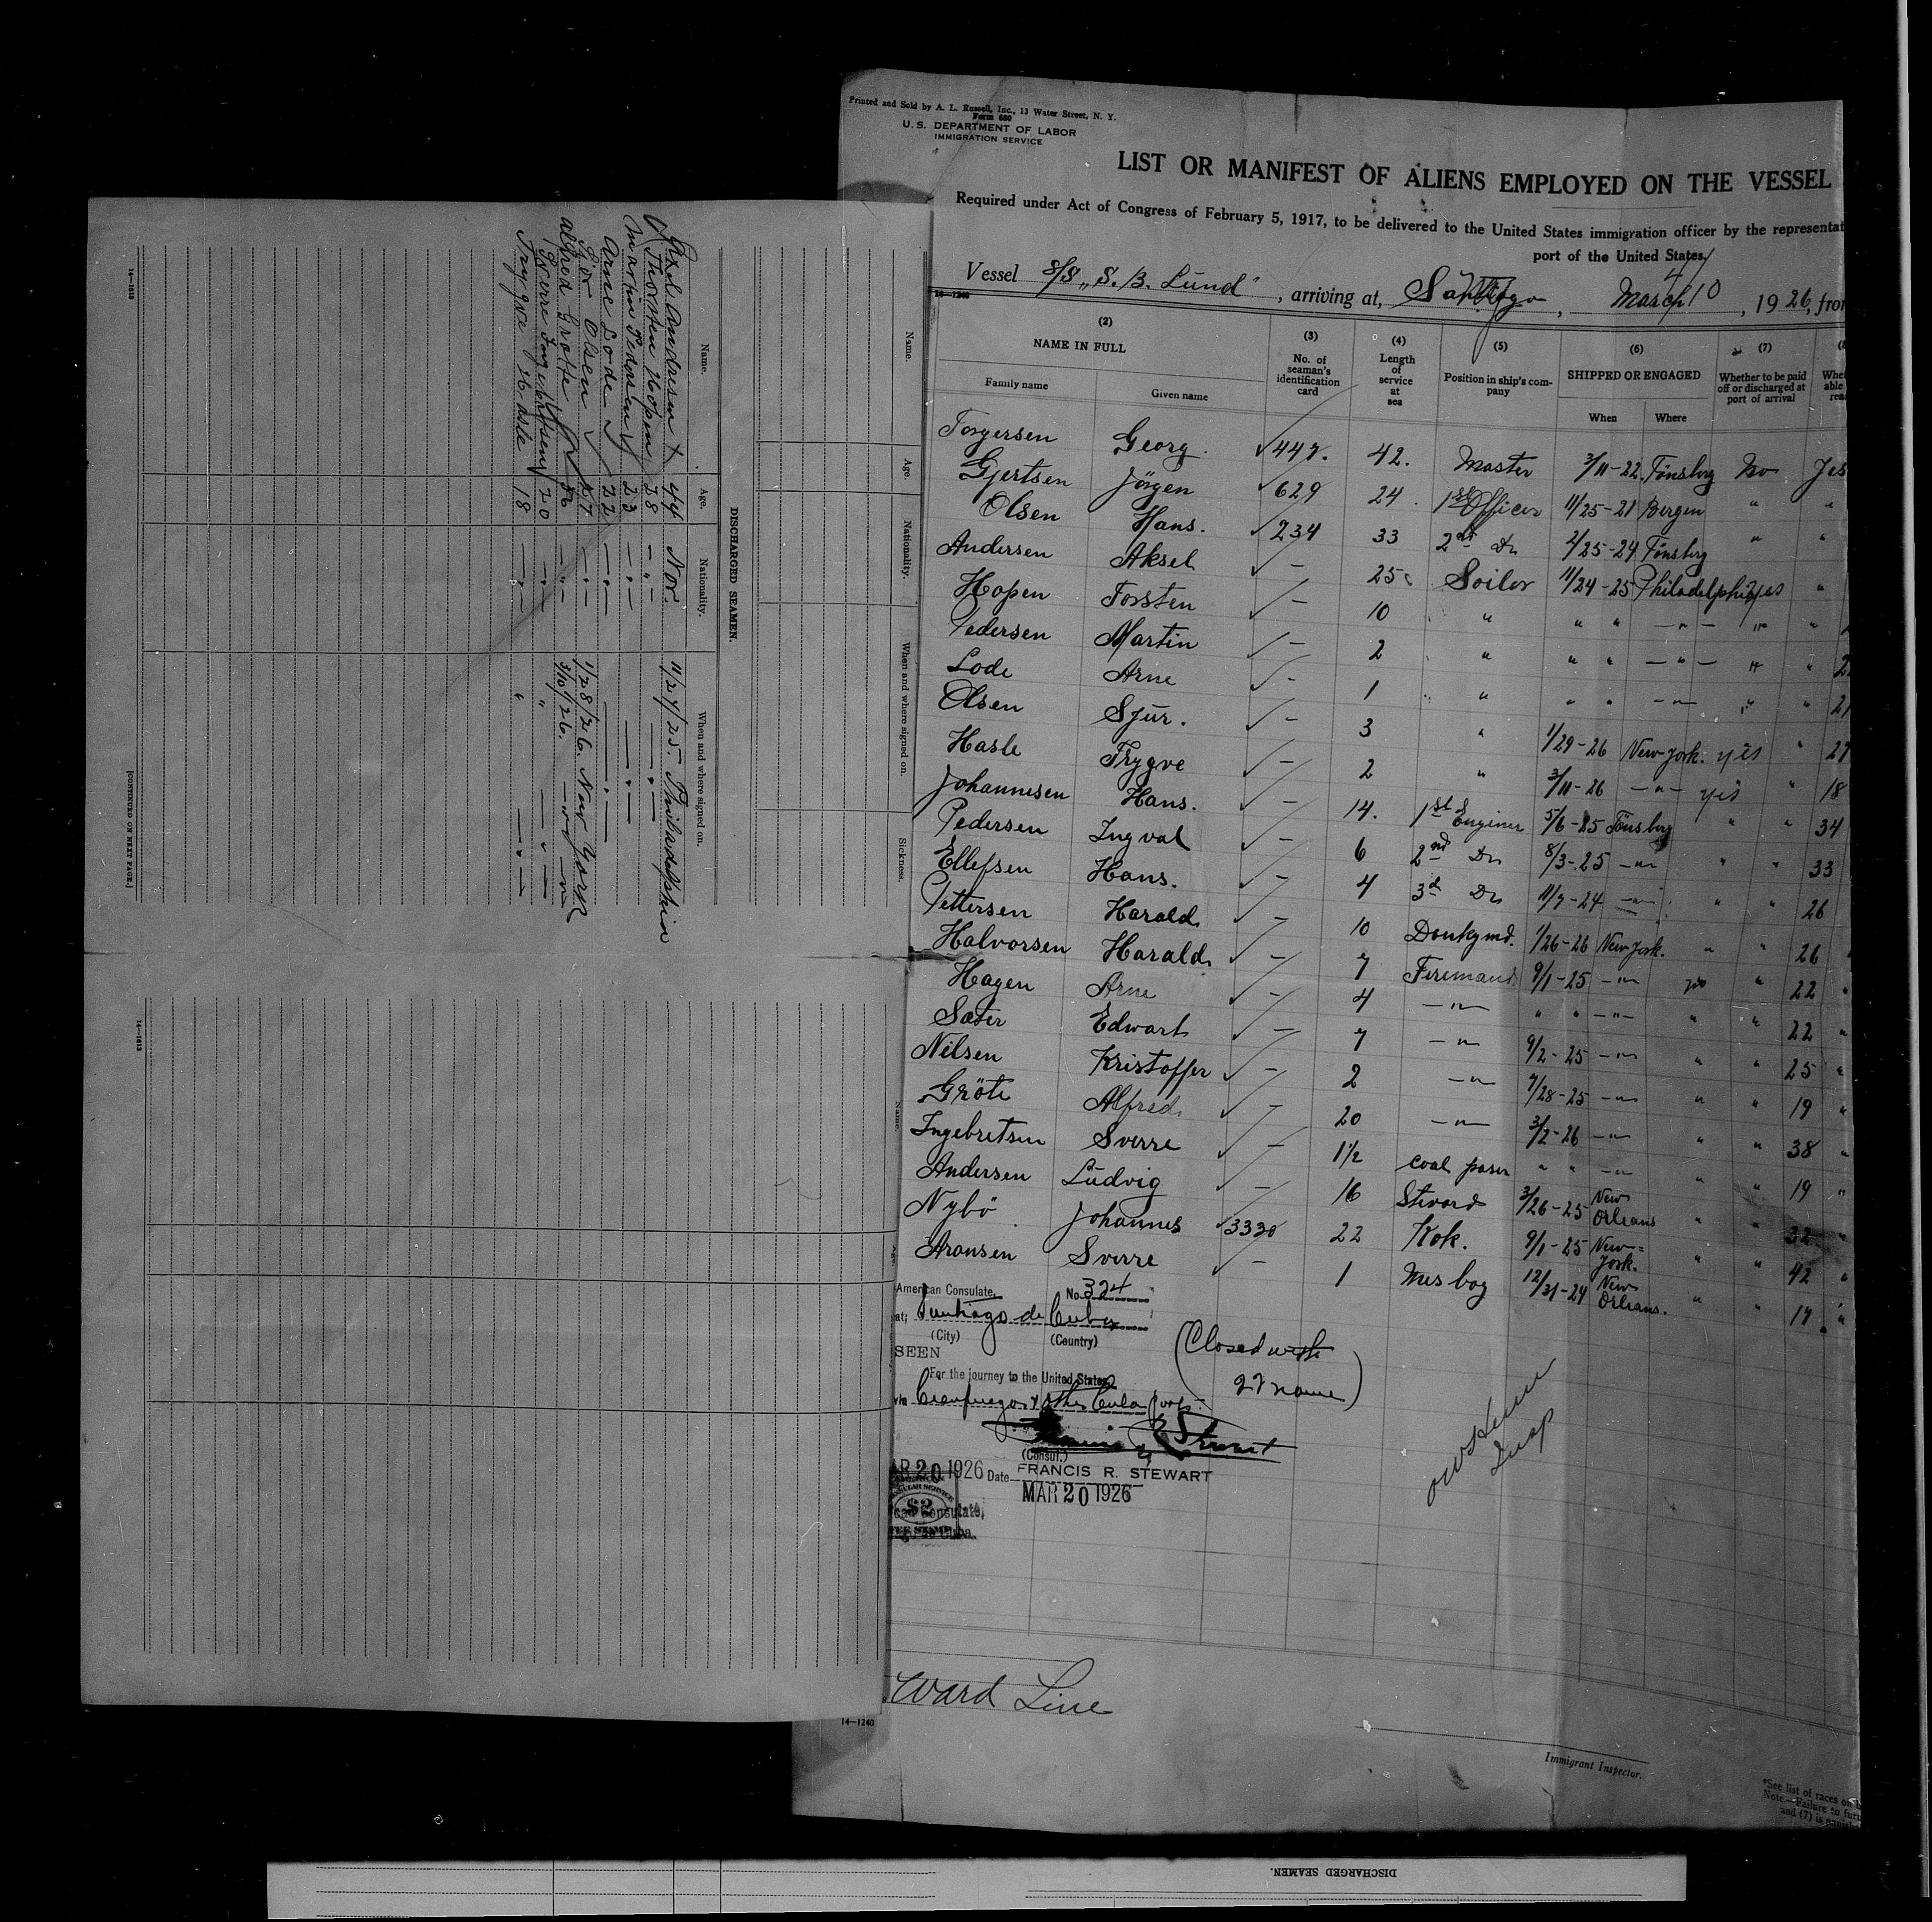 Printed and Sold by A. L. Russell, Inc., 13 Water Street, N. Y.
Form 680
U. S. DEPARTMENT OF LABOR
IMMIGRATION SERVICE
LIST OR MANIFEST OF ALIENS EMPLOYED ON THE VESSEL
Required under Act of Congress of February 5, 1917, to be delivered to the United States immigration officer by the representat
port of the United States
Vessel S/S „S. B. Lund", arriving at, Santiago, March 10, 1926, from
14—1240
(2) (3) (4) (5) (6) (7)
NAME IN FULL No. of seaman's identification card Length of service at sea Position in ship's company SHIPPED OR ENGAGED Whether to be paid off or discharged at port of arrival
Family name Given name When Where
Torgersen Georg. ✓ 447. 42. Master 3/11-22. Tønsberg No Yes
Gjertsen Jörgen ✓ 629 24 1st Officer 11/25-21 Bergen " "
Olsen Hans. ✓ 234 33 2nd Do 2/25-24 Tønsberg " "
Andersen Aksel ✓ — 25 Sailor 11/24-25 Philadelphia yes "
Hopen Torsten ✓ — 10 " " " —"— " "
Pedersen Martin ✓ — 2 " " " —"— " " 2
Lode Arne ✓ — 1 " " " —"— " " 21
Olsen Sjur. ✓ — 3 " 1/29-26 New York. yes " 27
Hasle Trygve ✓ — 2 " 3/11-26 —"— yes " 18
Johannesen Hans. ✓ — 14. 1st Enginer 5/6-25 Tönsberg " " 34
Pedersen Ingval ✓ — 6 2nd Do 8/3-25 —"— " " 33
Ellefsen Hans. ✓ — 4 3d Do 11/7-24 —"— " " 26
Pettersen Harald ✓ — 10 Donkymd. 1/26-26 New York. " " 26
Halvorsen Harald ✓ — 7 Firemand 9/1-25 —"— no " 22
Hagen Arne ✓ — 4 —"— " " —"— " " 22
Sæter Edwart ✓ — 7 —"— 9/2-25 —"— " " 25
Nilsen Kristoffer ✓ — 2 —"— 7/28-25 —"— " " 19
Gröte Alfred ✓ — 20 —"— 3/2-26 —"— " " 38
Ingebretsen Sverre ✓ — 1 1/2 coal paser " " —"— " " 19
Andersen Ludvig ✓ — 16 Stevard 3/26-25 New Orleans " " 32
Nybö Johannes ✓ 3330 22 Kok. 9/1-25 New-York. " " 42
Aronsen Sverre ✓ — 1 Mes boy 12/31-24 New Orleans. " " 17
American Consulate, No. 324
at; Santiago de Cuba
(City) (Country)
SEEN
For the journey to the United States
via Cienfuegos & other Cuba ports
(Closed with
22 name)
(Consul.)
FRANCIS R. STEWART
MAR 20 1926 Date MAR 20 1926
$2
Insp
Ward Line
14—1240
Immigrant Inspector.
*See list of races on b
Note.—Failure to furn
and (7) is punish
Name. Age. Nationality. When and where signed on. Sickness.
DISCHARGED SEAMEN.
Name. Age. Nationality. When and where signed on.
Axel Andresen + 44 Nor. 11/24/25. Philadelphia
Thorsten Hopen 28 —"— —"—
Martin Pedersen 23 —"— —"—
Arne Lode 22 —"— —"—
Sjor Olsen 27 —"— 1/28/26. New York
Alfred Grotte —"— 3/10/26. —"—
Sverre Ingebrigtsen 20 —"— " —"—
Trygve Hasle 18 —"— " —"—
14—1613
[CONTINUED ON NEXT PAGE.]
Name.
Age.
14—1613
DISCHARGED SEAMEN.